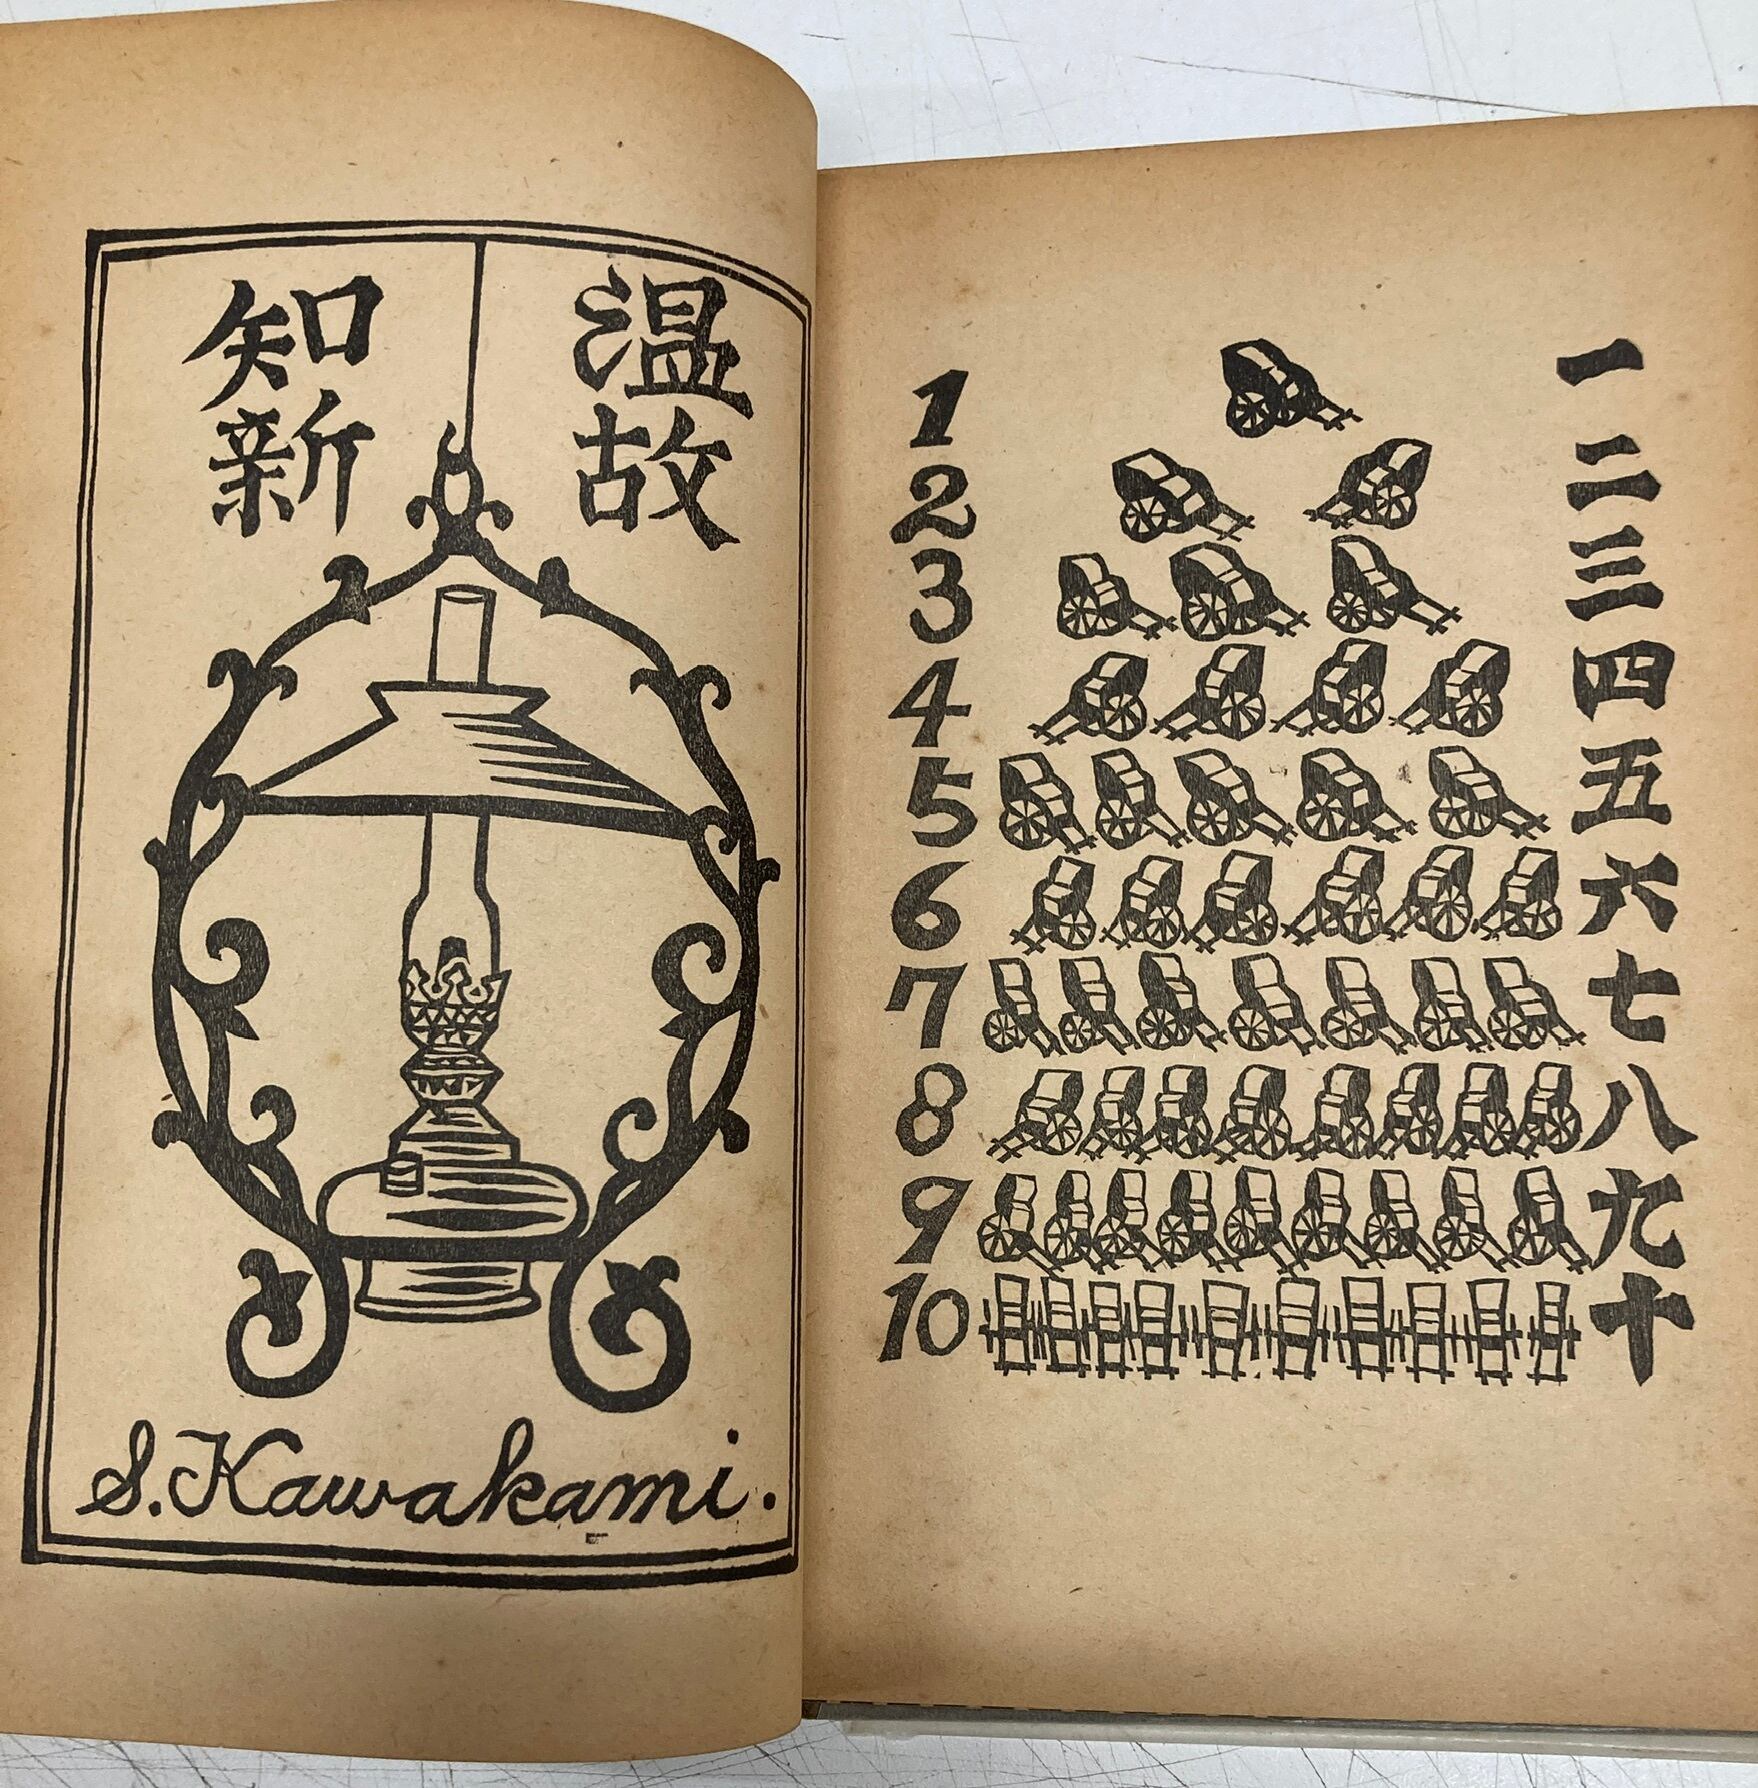 温故
知新
S. Kawakami.
1 一
2 二
3 三
4 四
5 五
6 六
7 七
8 八
9 九
10 十